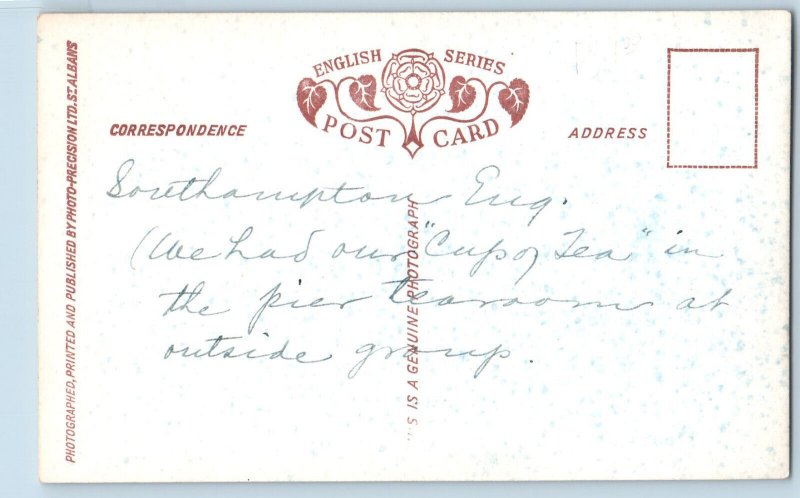 ENGLISH SERIES
POST CARD
CORRESPONDENCE
ADDRESS
PHOTOGRAPHED, PRINTED AND PUBLISHED BY PHOTO-PRECISION LTD, ST. ALBANS
IS A GENUINE PHOTOGRAPH
Southampton Eng.
(We had our "Cup of Tea" in
the pier tearoom at
outside group.